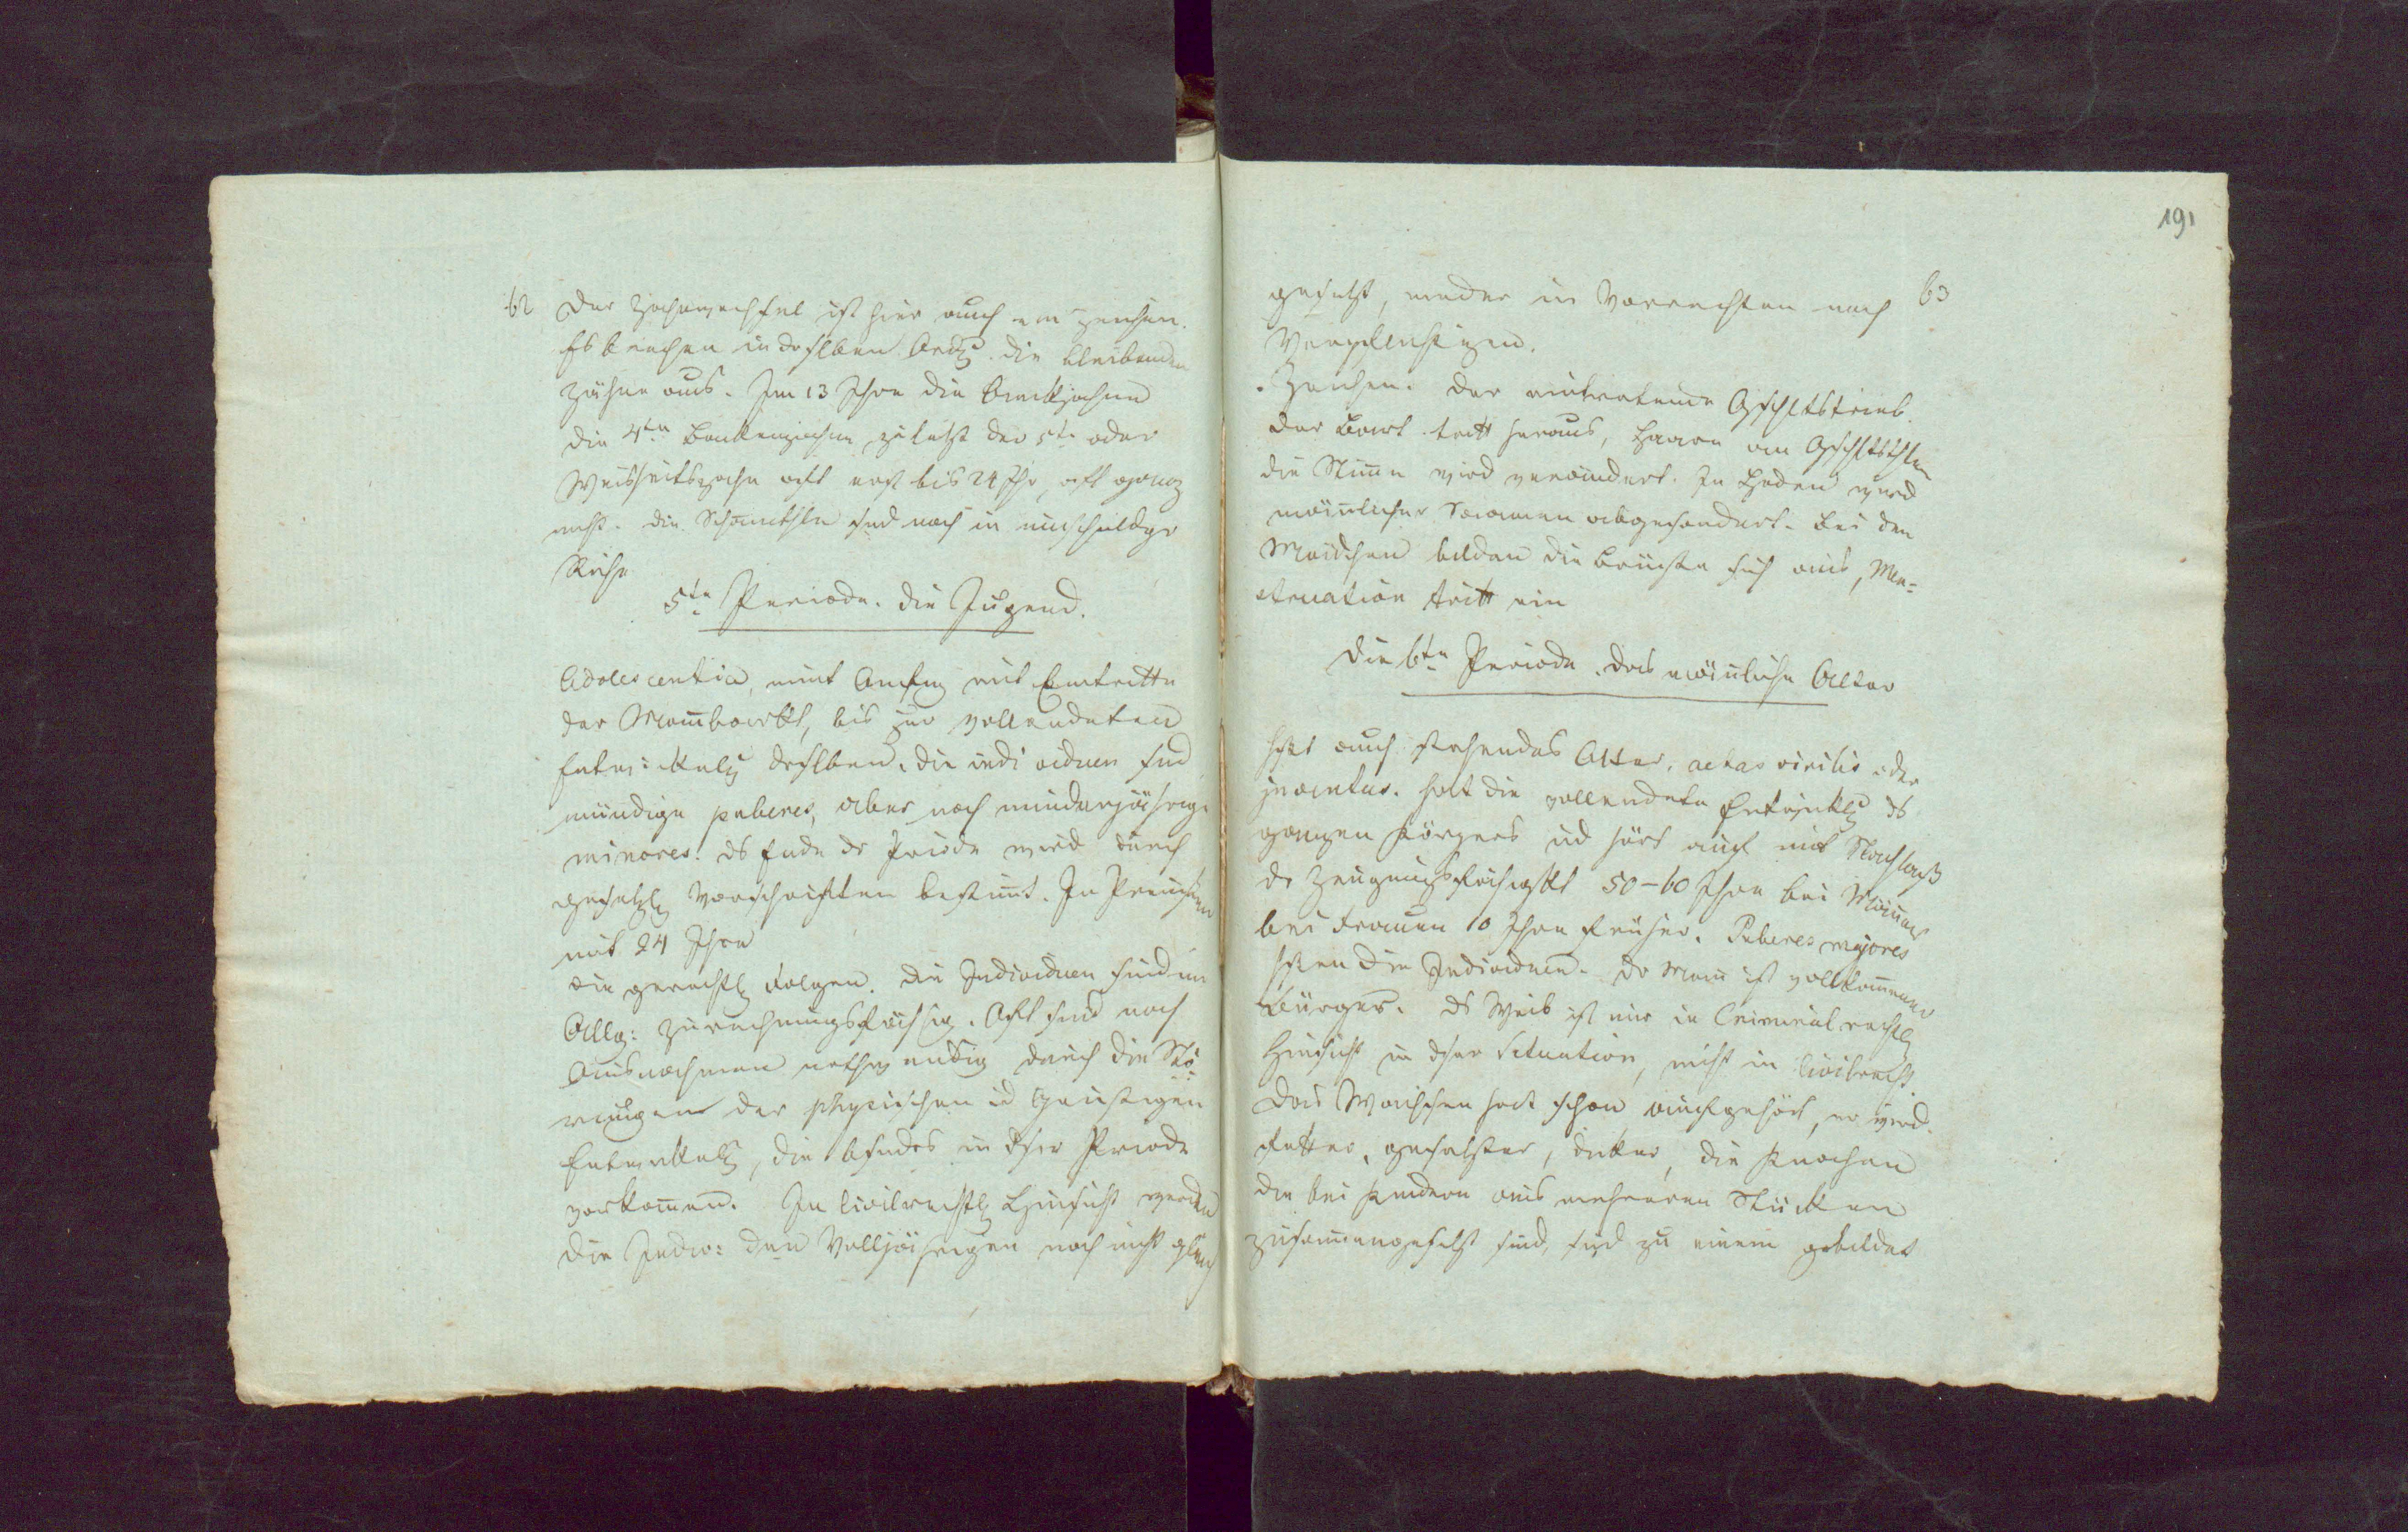 62
Der Zahnwechsel ist hier auch ein Zeichen.
Es brechen in dsslben Ordg die bleibenden
Zähne aus. Im 13 Jhre die Backzähne
die 4te Backenzähne zuletzt der 5te oder
Weisheitszahn oft erst bis 24 Jhr, oft ganz
nicht. Die Schamthle snd noch in unschuldgr
Ruhe
5te Periode. Die Jugend.
Adolescentia, nimt Anfng mit Eintritte
der Mannbarkt, bis zur vollendeten
Entwickelg desslben. Die individuen sind
mündige puberes, aber noch minderjährige
minores. ds Ende dr Priode wird durch
gesetzl Vorschriften bestimt. In Preussen
mit 24 Jhre
Die gerichtl Folgen. Die Individuen sind im
Allg: zurechnungsfähig. Oft sind noch
Ausnahmen nothwendig durch die Stö-
rungen der physischen ud Geistigen
Entwicklg, die bsnders in dser Priode
vorkommen. In civilrechtl Hinsicht werden
die Indiv: den Volljährigen noch nicht gleich
191
63
gesetzt, weder in Vorrechten noch
Verpflichtgen.
Zeichen. Der eintretende Gschltstrieb.
Der Bart tritt heraus, Haare an Gschltsthln
die Stimme wird verändert. In Hoden wird
männlicher Saamen abgesondert. Bei den
Mädchen bilden die Brüste sich aus, Men-
struation tritt ein
Die 6te Periode. Das männliche Alter
hsst auch stehendes Alter, aetas virilis oder
juventus. hat die vollendete Entwicklg ds
ganzen Körpers ud hört auf mit Nachlaß
dr Zeugungsfähigkt 50-60 Jhre bei Männer
bei Frauen 10 Jhre früher. Puberes majores
hssen die Individuen. Dr Mann ist vollkommener
Bürger. Ds Weib ist nur in Criminalrechtl
Hinsicht in dser Situation, nicht in Civilrecht.
Das Wachsen hat schon aufgehört, er wird
fetter, gesetzter, dicker, die Knochen
die bei Kindern aus mehreren Stücken
zusammengesetzt sind, sind zu einem gebildet